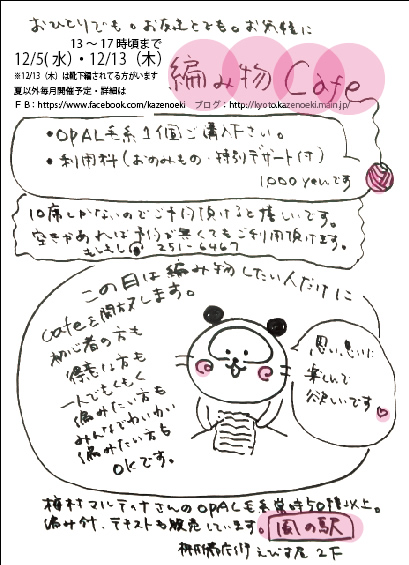 おひとりでも。お友達とでも。お気軽に
13～17時頃まで
12/5(水)・12/13（木）
※12/13（木）は靴下編されてる方がいます
夏以外毎月開催予定・詳細は
ＦＢ：https://www.facebook.com/kazenoeki　ブログ：http://kyoto.kazenoeki.main.jp/
編み物 Cafe
・OPAL毛糸1個ご購入下さい。
・利用料(お飲みもの・特別デザート付)
1000yenです
10席しかないのでご予約頂けると嬉しいです。
空きがあれば予約が無くてもご利用頂けます。
もしもし☎ 251-6467
この日は編み物したい人だけに
cafeを開放します。
初心者の方も
得意な方も
一人でもくもく
編みたい方も
みんなでわいわい
編みたい方も
OKです。
思い思いに
楽しんで
欲しいです
梅村マルティナさんのOPAL毛糸常時50種以上。
編み針、テキストも販売しています。
風の駅
えびす屋2F